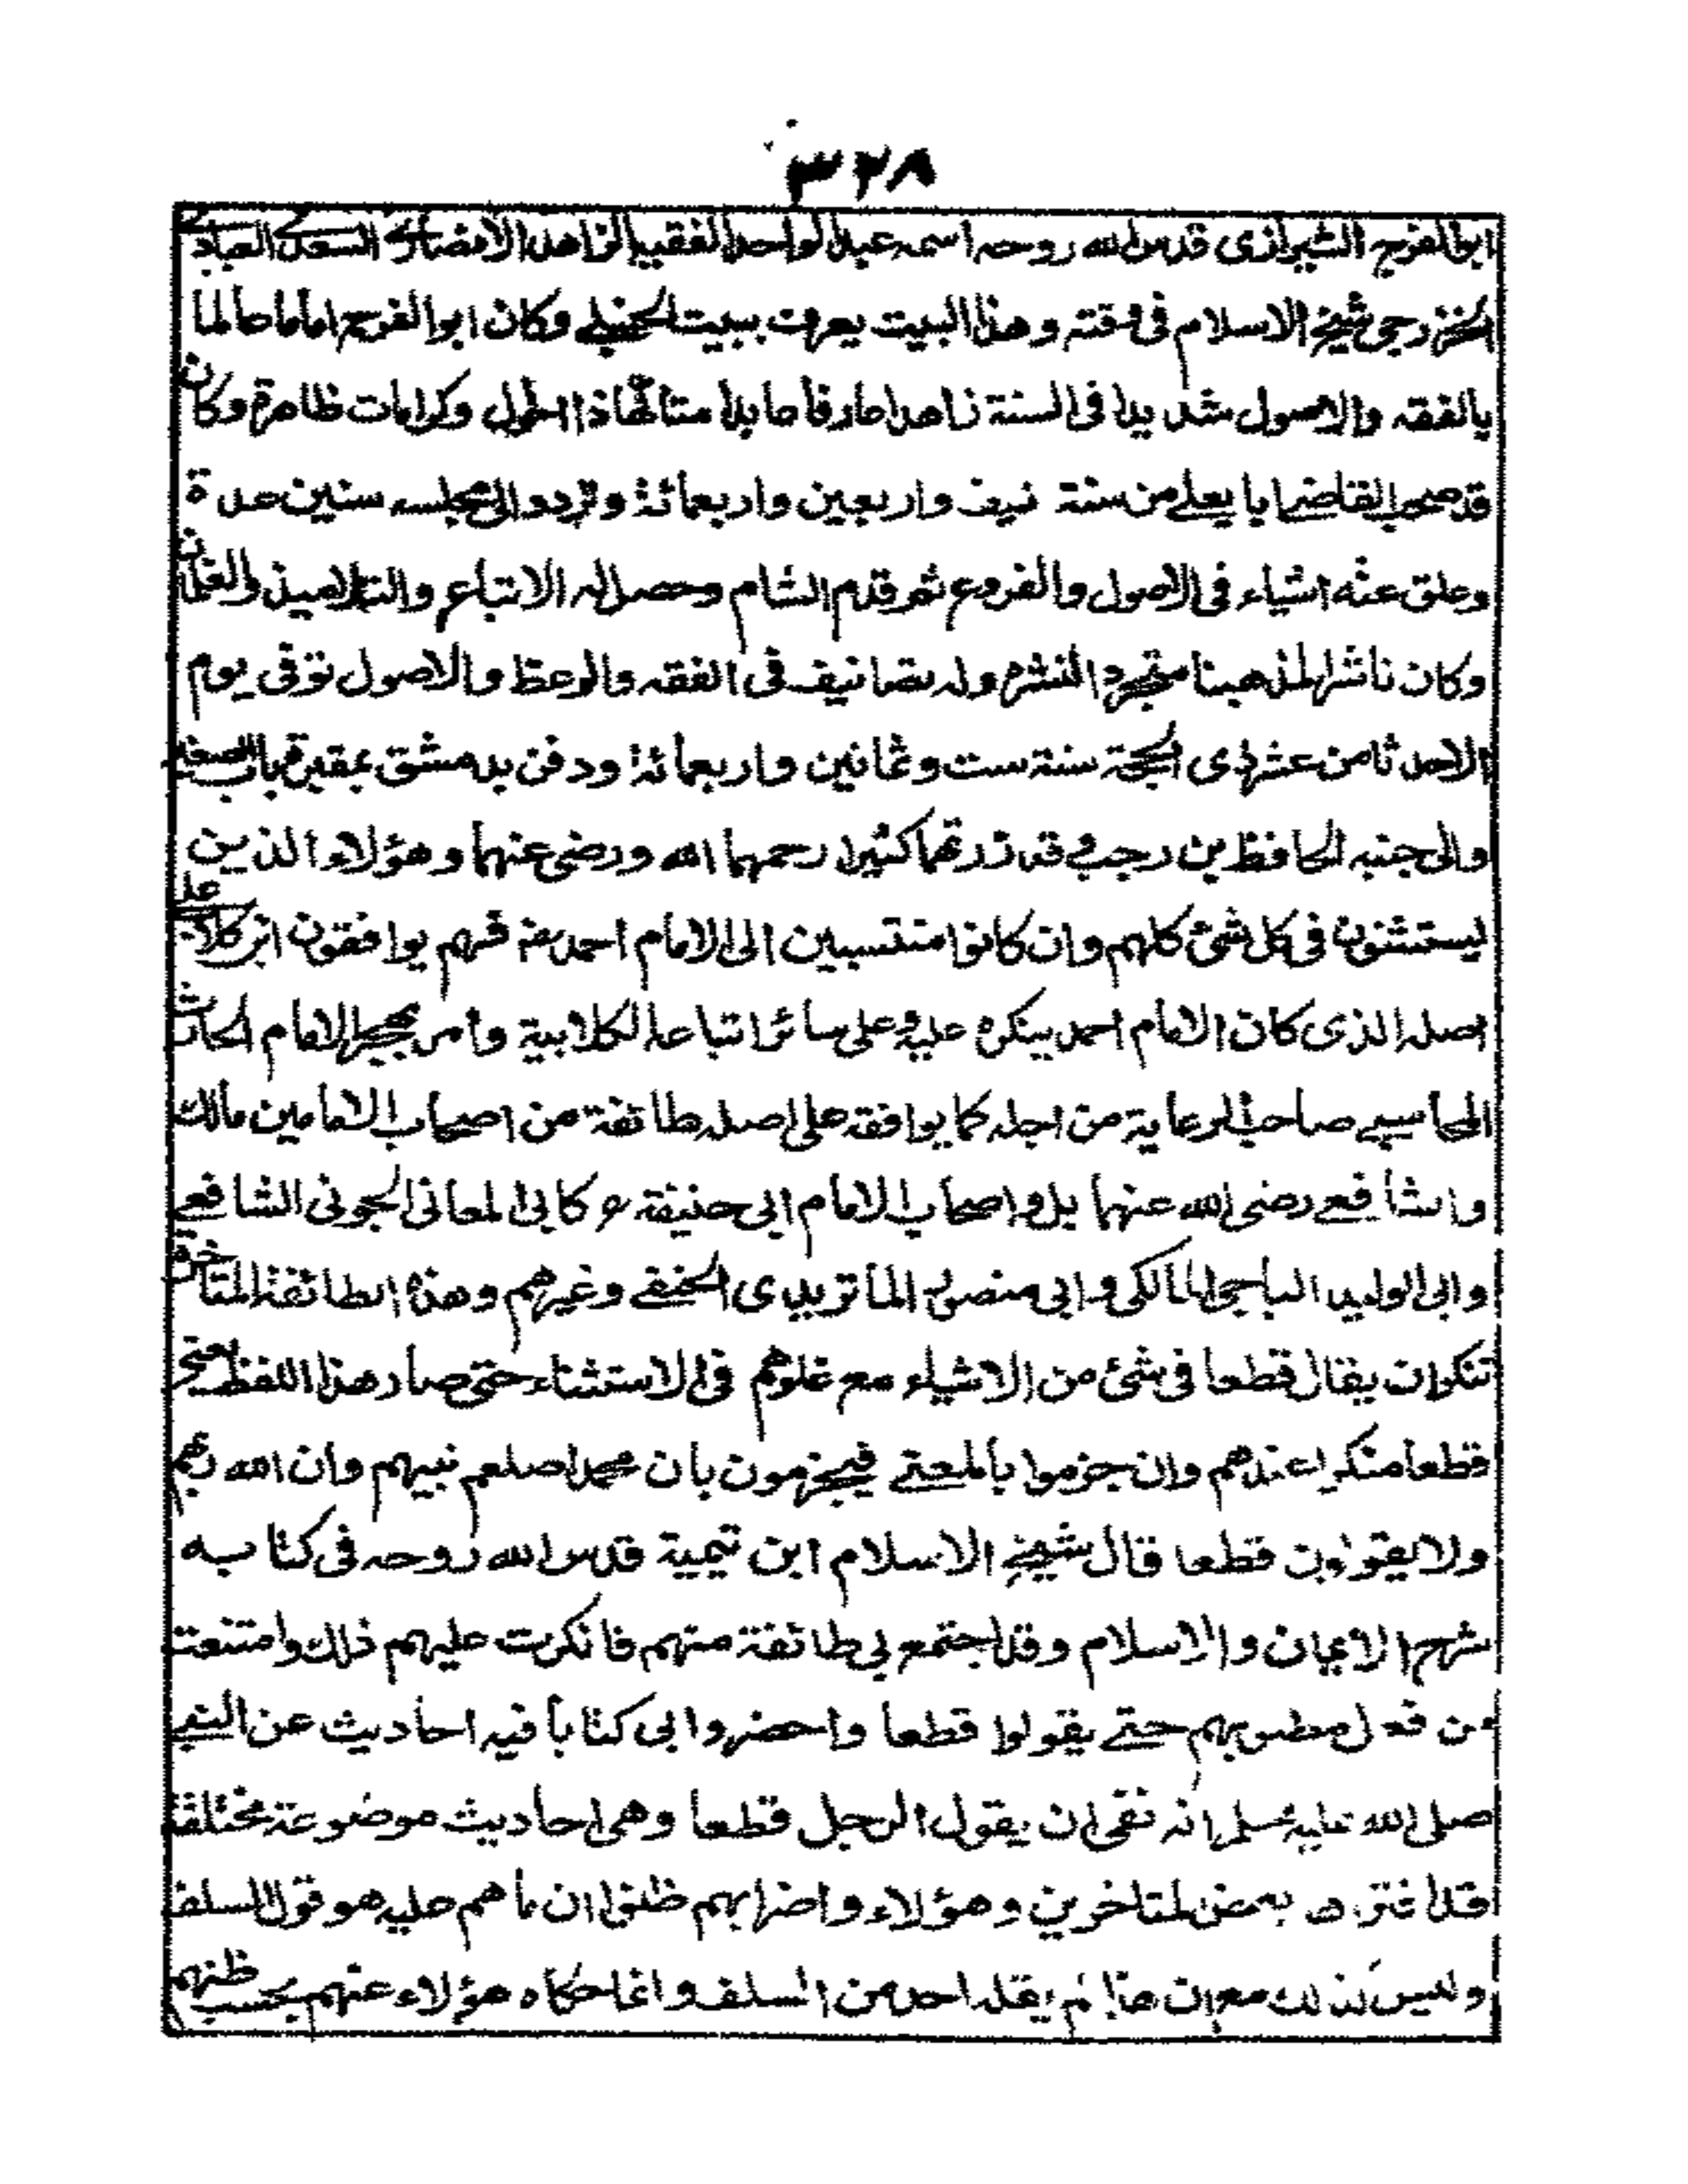 ٣٢٨
ابو الفرج الشيرازى قدس الله روحه اسمه عبد الواحد الفقيه الزاهد الانصارى السعدى العبادى
الخزرجى شيخ الاسلام فى وقته وهذا البيت يعرف ببيت الحنبلى وكان ابو الفرج اماما عالما
بالفقه والاصول شديدا فى السنة زاهدا عارفا عابدا متألها ذا احوال وكرامات ظاهرة وكان
قد صحب القاضى ابا يعلى من سنة نيف واربعين واربعمائة وتردد الى مجلسه سنين عدة
وعلق عنه اشياء فى الاصول والفروع ثم قدم الشام وحصل له الاتباع والتلاميذ والغلمان
وكان ناشرا لمذهبنا متجردا لنشره وله تصانيف فى الفقه والوعظ والاصول توفى يوم
الاحد ثامن عشر ذى الحجة سنة ست وثمانين واربعمائة ودفن بدمشق بمقبرة باب الصغير
والى جنبه الحافظ بن رجب وقد زرتهما كثيرا رحمهما الله ورضى عنهما وهؤلاء الذين
يستثنون فى كل شئ كلهم وان كانوا منتسبين الى الامام احمد رضه فهم يوافقون ابن كلاب على
اصله الذى كان الامام احمد ينكره عليه وعلى سائر اتباعه الكلابية وأمر بهجر الامام الحارث
المحاسبى صاحب الرعاية من اجله كما يوافقه على اصله طائفة من اصحاب الامامين مالك
والشافعى رضى الله عنهما بل واصحاب الامام ابى حنيفة رح كابى المعانى الجونى الشافعى
وابى الوليد الباجى المالكى وابى منصور الماتريدى الحنفى وغيرهم وهذه الطائفة المتاخرة
تنكر ان يقال قطعا فى شئ من الاشياء مع غلوهم فى الاستثناء حتى صار هذا اللفظ يعنى
قطعا منكرا عندهم وان جزموا بالمعنى فيجزمون بان محمدا صلعم نبيهم وان الله ربهم
ولا يقولون قطعا قال شيخ الاسلام ابن تيمية قدس الله روحه فى كتابه
شرح الايمان والاسلام وقد اجتمع بى طائفة منهم فانكرت عليهم ذلك وامتنعت
من فعل مطلوبهم حتى يقولوا قطعا واحضروا لى كتابا فيه احاديث عن النبى
صلى الله عليه وسلم انه نهى ان يقول الرجل قطعا وهى احاديث موضوعة مختلقة
قد افتراها بعض المتاخرين وهؤلاء واضرابهم ظنوا ان ما هم عليه هو قول السلف
وليس كذلك مع ان هذا لم يقله احد من السلف وانما حكاه هؤلاء عنهم بحسب ظنهم